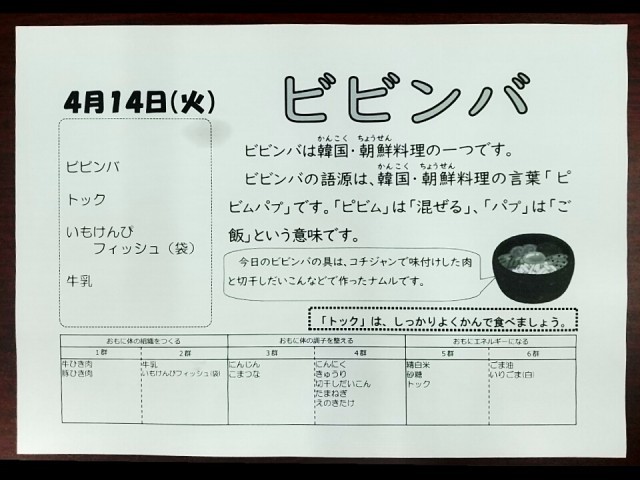 4月14日(火)
ビビンバ
ビビンバ
トック
いもけんぴ
フィッシュ(袋)
牛乳
かんこく ちょうせん
ビビンバは韓国・朝鮮料理の一つです。
かんこく ちょうせん
ビビンバの語源は、韓国・朝鮮料理の言葉「ピ
ビムパプ」です。「ピビム」は「混ぜる」、「パプ」は「ご
飯」という意味です。
今日のビビンバの具は、コチジャンで味付けした肉
と切干しだいこんなどで作ったナムルです。
「トック」は、しっかりよくかんで食べましょう。
おもに体の組織をつくる おもに体の調子を整える おもにエネルギーになる
1群 2群 3群 4群 5群 6群
牛ひき肉 牛乳 にんじん にんにく 精白米 ごま油
豚ひき肉 いもけんぴフィッシュ(袋) こまつな きゅうり 砂糖 いりごま(白)
切干しだいこん トック
たまねぎ
えのきたけ